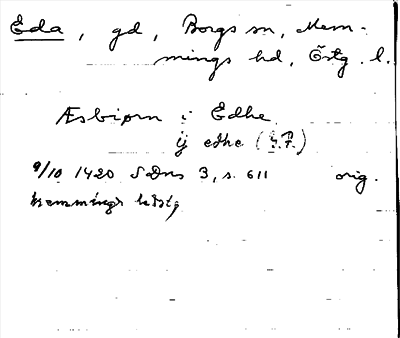 Eda, gd, Borgs sn, Mem-
mings hd, Östg. l.
Æsbiørn i Edhe
ij edhe (s.P.)
9/10 1420 SDns 3, s. 611 orig.
Hæmmings